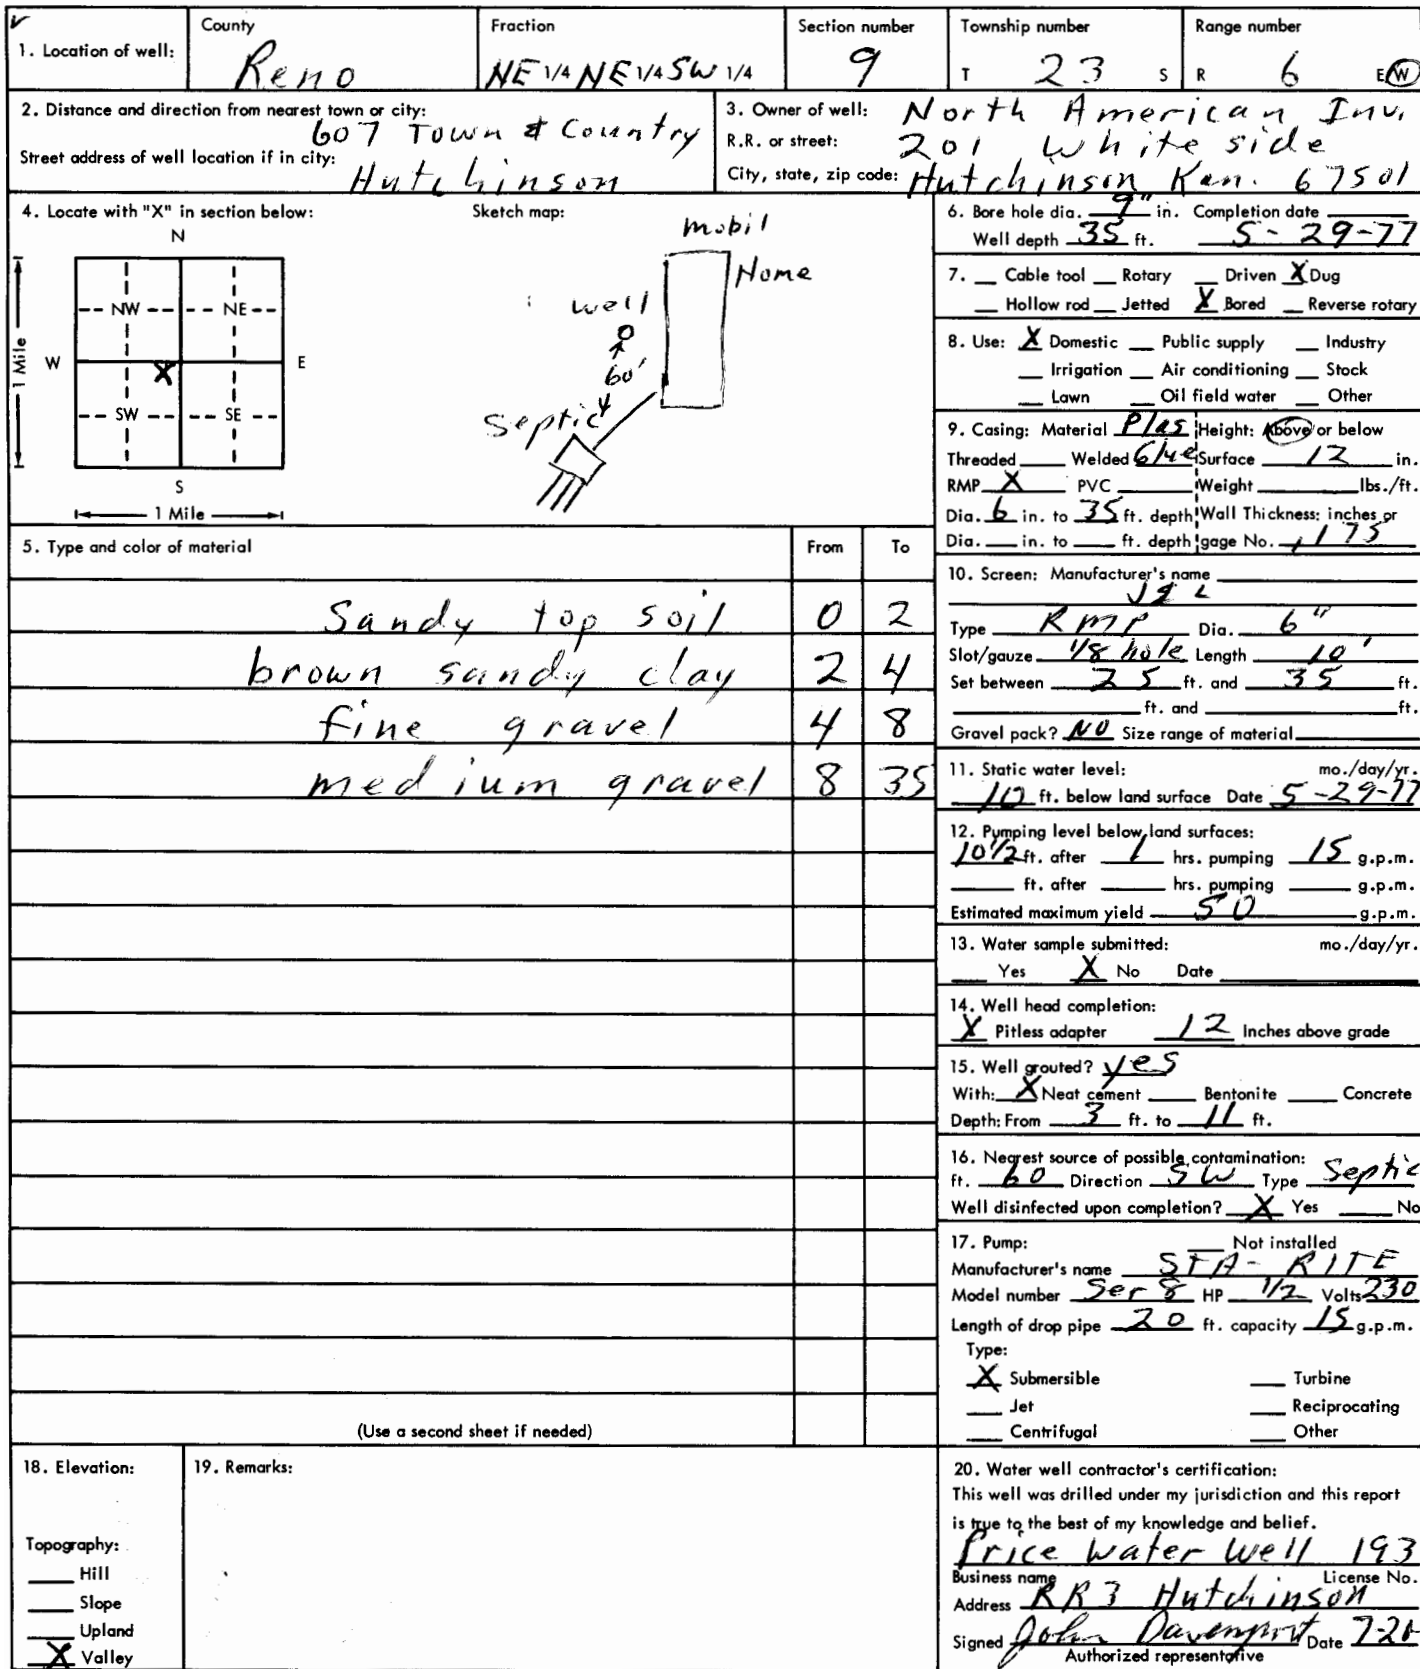 1. Location of well:
County
Reno
Fraction
NE 1/4 NE 1/4 SW 1/4
Section number
9
Township number
T 23 S
Range number
R 6 E W
2. Distance and direction from nearest town or city:
607 Town & Country
Street address of well location if in city:
Hutchinson
3. Owner of well: North American Inv.
R.R. or street: 201 Whiteside
City, state, zip code: Hutchinson Kan. 67501
4. Locate with "X" in section below:
N
NW NE
W E
X
SW SE
S
1 Mile
1 Mile
Sketch map:
mobil
Home
well
60'
Septic
5. Type and color of material From To
Sandy top soil 0 2
brown sandy clay 2 4
fine gravel 4 8
medium gravel 8 35
(Use a second sheet if needed)
6. Bore hole dia. 9" in. Completion date
Well depth 35 ft. 5-29-77
7. __ Cable tool __ Rotary __ Driven X Dug
__ Hollow rod __ Jetted X Bored __ Reverse rotary
8. Use: X Domestic __ Public supply __ Industry
__ Irrigation __ Air conditioning __ Stock
__ Lawn __ Oil field water __ Other
9. Casing: Material Plas Height: Above or below
Threaded ____ Welded Glue Surface 12 in.
RMP X PVC ____ Weight ____ lbs./ft.
Dia. 6 in. to 35 ft. depth Wall Thickness: inches or
Dia. __ in. to __ ft. depth gage No. .175
10. Screen: Manufacturer's name
Type RMP Dia. 6"
Slot/gauze 1/8 hole Length 10'
Set between 25 ft. and 35 ft.
____ ft. and ____ ft.
Gravel pack? NO Size range of material
11. Static water level: mo./day/yr.
10 ft. below land surface Date 5-29-77
12. Pumping level below land surfaces:
10 1/2 ft. after 1 hrs. pumping 15 g.p.m.
____ ft. after ____ hrs. pumping ____ g.p.m.
Estimated maximum yield 50 g.p.m.
13. Water sample submitted: mo./day/yr.
__ Yes X No Date
14. Well head completion:
X Pitless adapter 12 Inches above grade
15. Well grouted? yes
With: X Neat cement ____ Bentonite ____ Concrete
Depth: From 3 ft. to 11 ft.
16. Nearest source of possible contamination:
ft. 60 Direction SW Type Septic
Well disinfected upon completion? X Yes ____ No
17. Pump: __ Not installed
Manufacturer's name STA-RITE
Model number Ser 8 HP 1/2 Volts 230
Length of drop pipe 20 ft. capacity 15 g.p.m.
Type:
X Submersible __ Turbine
__ Jet __ Reciprocating
__ Centrifugal __ Other
18. Elevation:
Topography:
__ Hill
__ Slope
__ Upland
X Valley
19. Remarks:
20. Water well contractor's certification:
This well was drilled under my jurisdiction and this report
is true to the best of my knowledge and belief.
Price Water Well 193
Business name License No.
Address RR3 Hutchinson
Signed John Davenport Date 7-20
Authorized representative